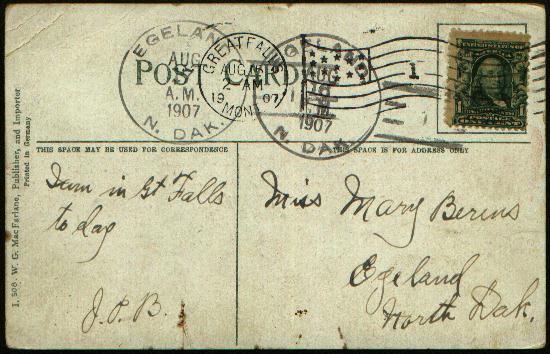 EGELAND
AUG
A.M.
1907
N. DAK.
GREAT FALLS
AUG
2-AM
19 07
MONT
EGELAND
AUG
1907
N. DAK.
POST CARD
1
THIS SPACE MAY BE USED FOR CORRESPONDENCE
THIS SPACE IS FOR ADDRESS ONLY
I am in Gt Falls
to day
J.P.B.
Miss Mary Berens
Egeland
North Dak.
I, 508. W. G. MacFarlane, Publisher, and Importer
Printed in Germany